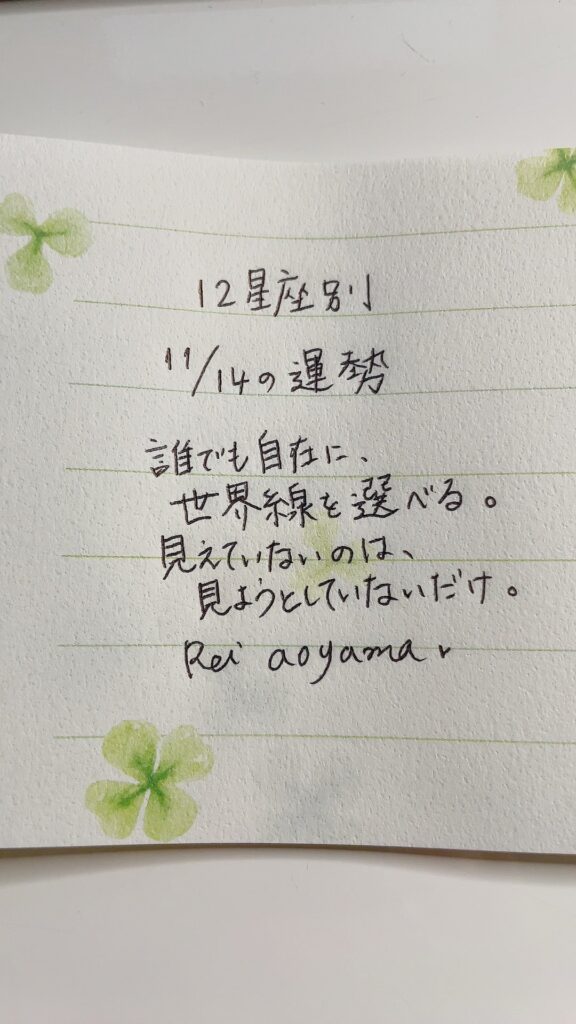 12星座別
11/14の運勢
誰でも自在に、
世界線を選べる。
見えていないのは、
見ようとしていないだけ。
Rei aoyama